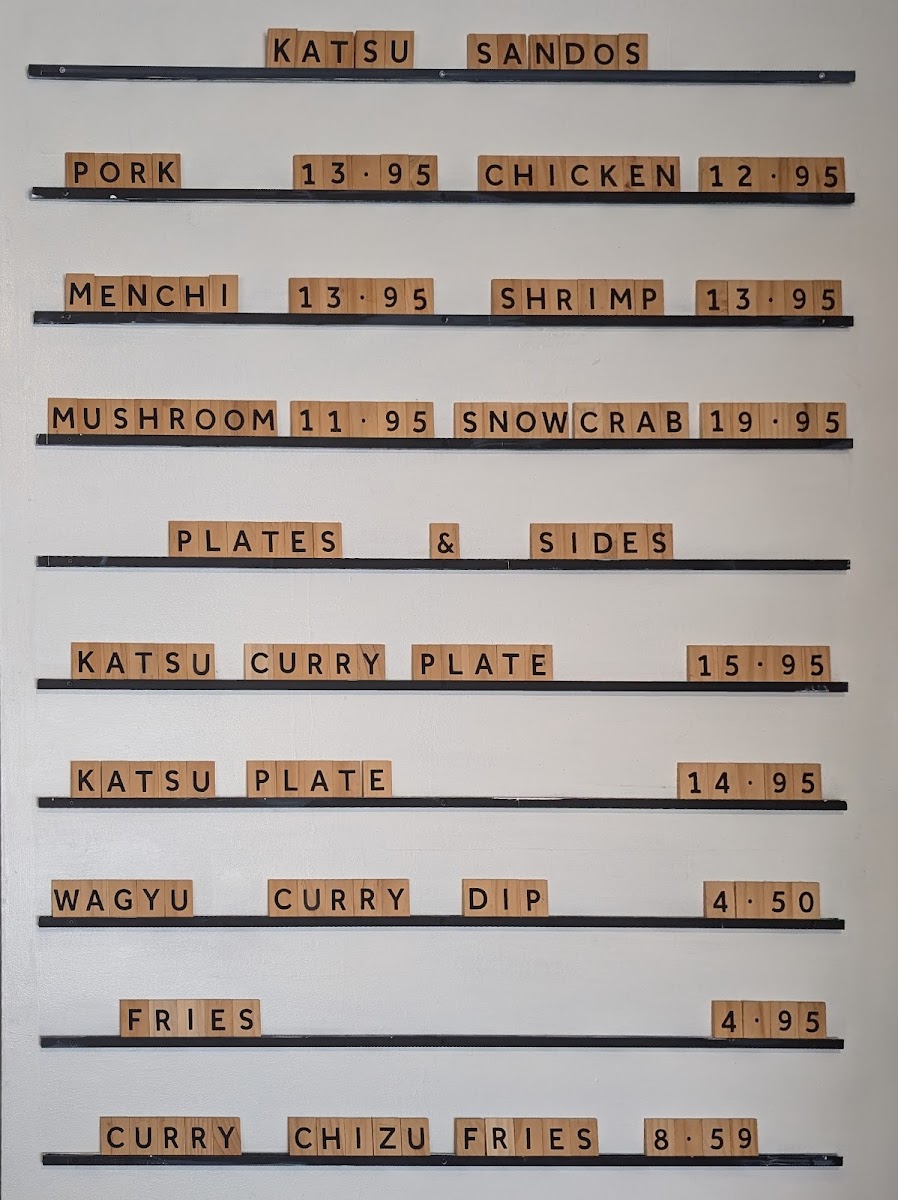 KATSU SANDOS
PORK 13·95 CHICKEN 12·95
MENCHI 13·95 SHRIMP 13·95
MUSHROOM 11·95 SNOWCRAB 19·95
PLATES & SIDES
KATSU CURRY PLATE 15·95
KATSU PLATE 14·95
WAGYU CURRY DIP 4·50
FRIES 4·95
CURRY CHIZU FRIES 8·59